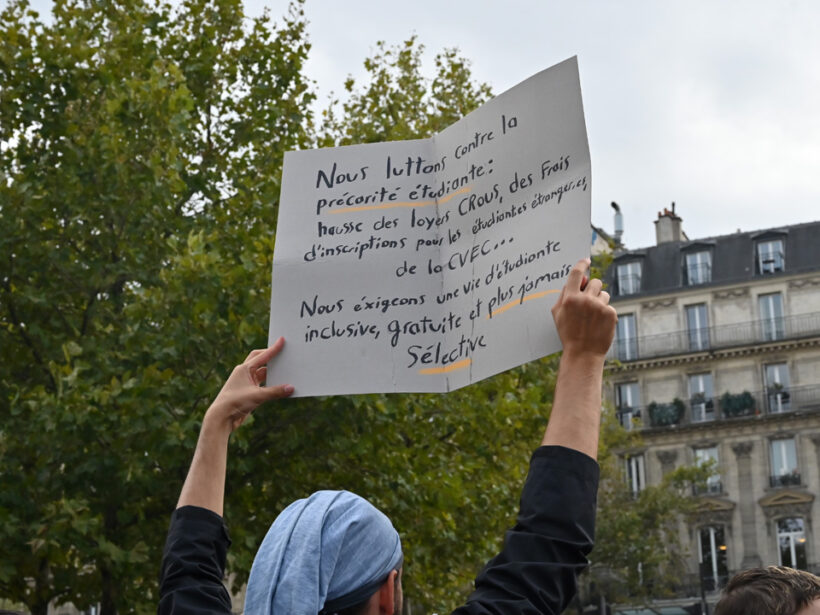 Nous luttons contre la
précarité étudiante :
hausse des loyers CROUS, des frais
d'inscriptions pour les étudiantes étranger,es,
de la CVEC...
Nous éxigeons une vie d'étudiante
inclusive, gratuite et plus jamais
Sélective